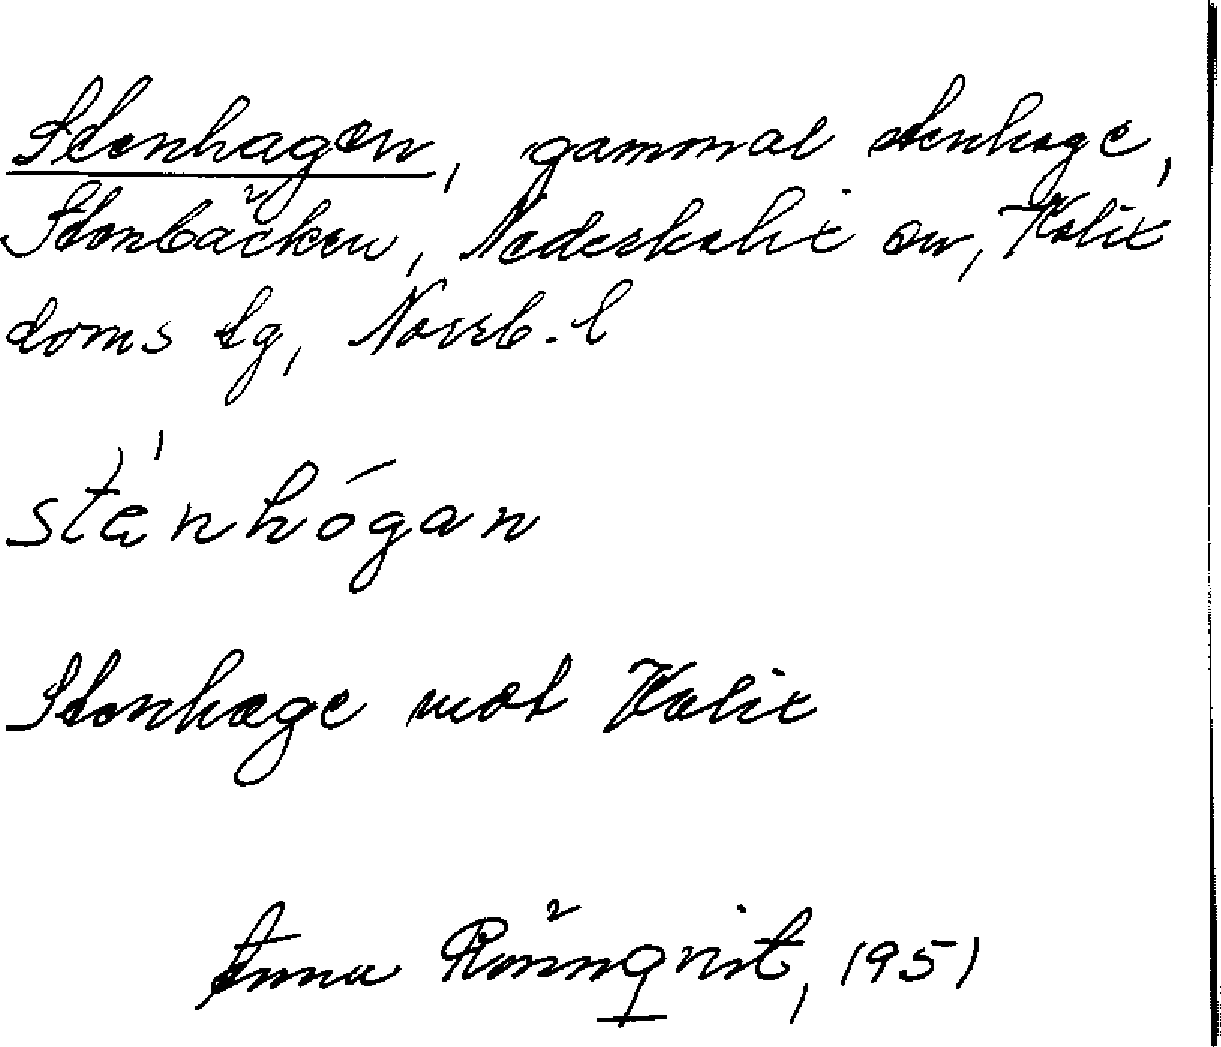 Stenhagen, gammal stenhage,
Stenbäcken, Nederkalix sn, Kalix
doms lg, Norrb. l
Stenhage mot Kalix
Anna Rönnqvist, 1951